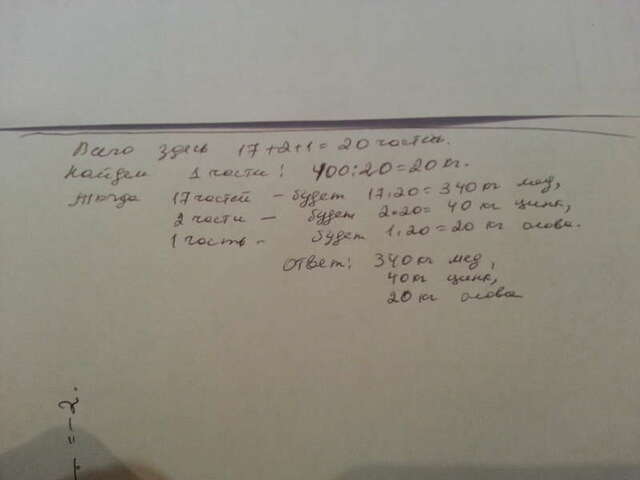 Всего здесь 17+2+1=20 частей.
Найдем 1 части! 400:20=20 кг.
Тогда 17 частей - будет 17·20=340 кг мед,
2 части - будет 2·20= 40 кг цинк,
1 часть - будет 1·20=20 кг олова.
Ответ! 340 кг мед,
40 кг цинк,
20 кг олова
=-2.